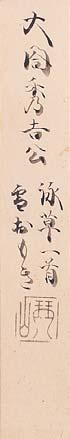 大閤秀吉公
詠草一首
雪おもき